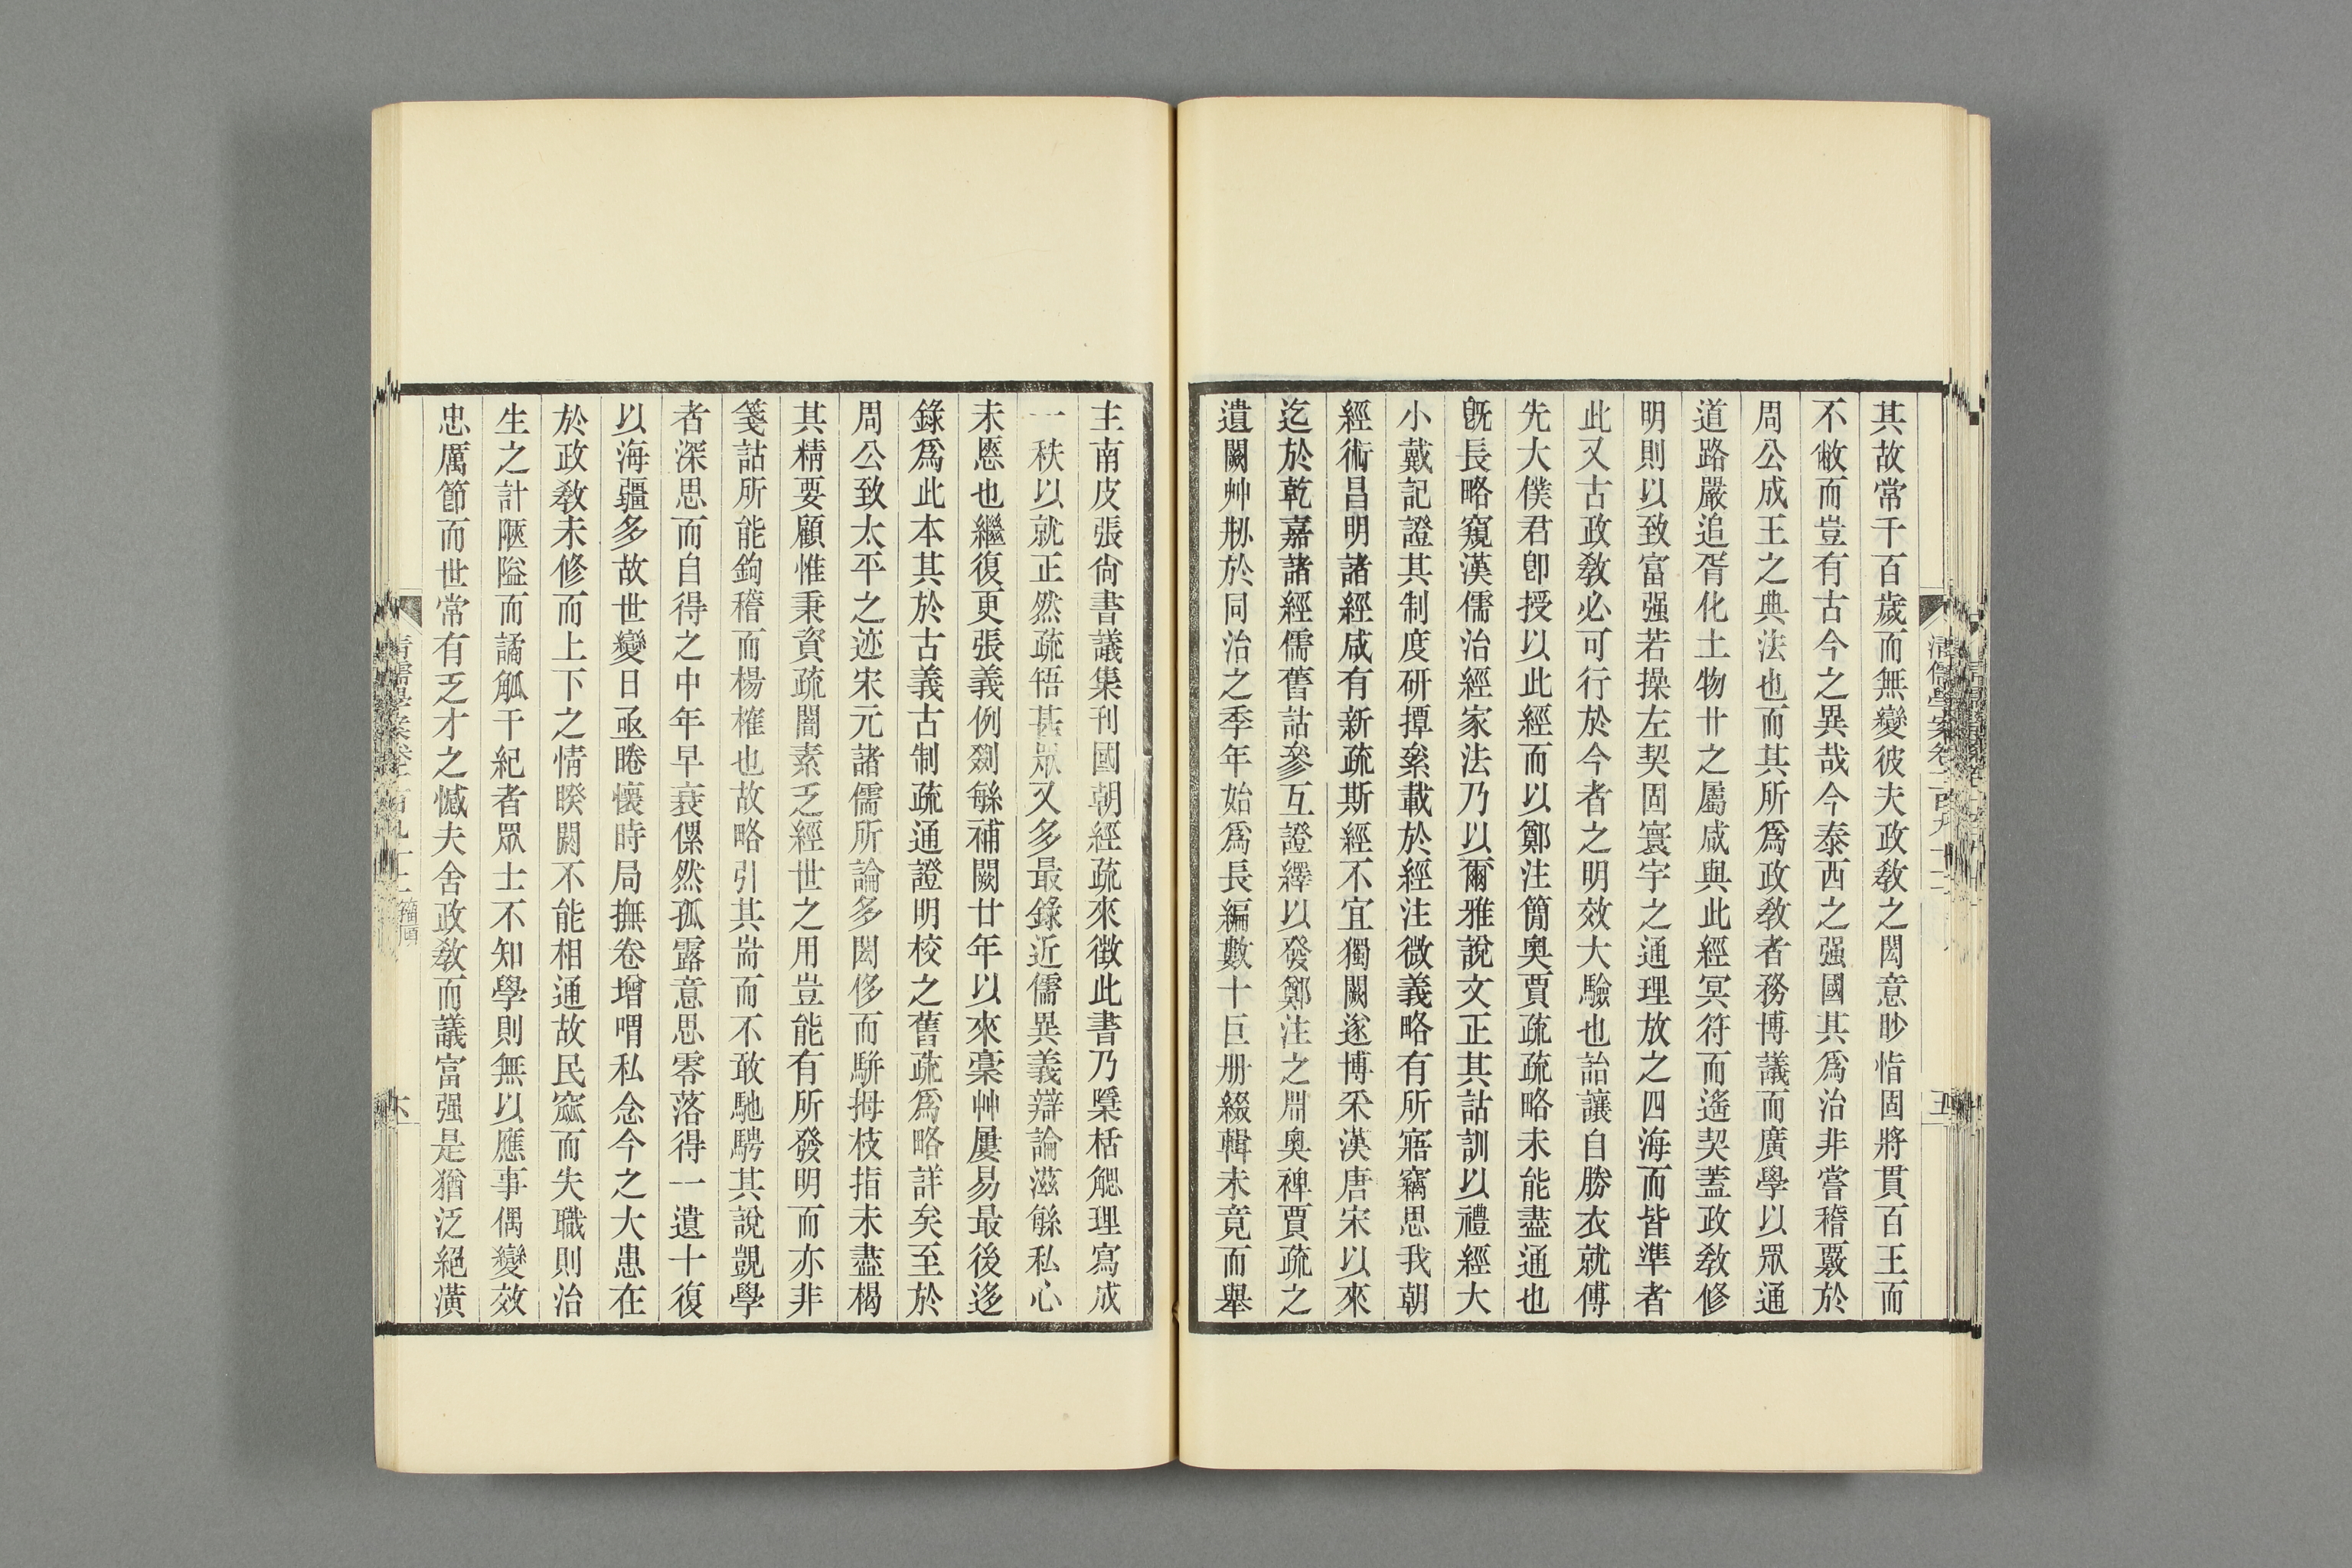 其故常千百歲而無變彼夫政敎之閎意眇恉固將貫百王而
不敝而豈有古今之異哉今泰西之强國其爲治非嘗稽覈於
周公成王之典法也而其所爲政敎者務博議而廣學以眾通
道路嚴追胥化土物卝之屬咸與此經冥符而遙契蓋政敎修
明則以致富强若操左契固寰宇之通理放之四海而皆準者
此又古政敎必可行於今者之明效大驗也詒讓自勝衣就傅
先大僕君卽授以此經而以鄭注簡奧賈疏疏略未能盡通也
旣長略窺漢儒治經家法乃以爾雅說文正其詁訓以禮經大
小戴記證其制度研撢絫載於經注微義略有所寤竊思我朝
經術昌明諸經咸有新疏斯經不宜獨闕遂博釆漢唐宋以來
迄於乾嘉諸經儒舊詁參互證繹以發鄭注之淵奧裨賈疏之
遺闕艸剙於同治之季年始爲長編數十巨册綴輯未竟而舉
主南皮張尙書議集刊國朝經疏來徵此書乃櫽栝鰓理寫成
一秩以就正然疏啎甚眾又多最錄近儒異義辯論滋緐私心
未愿也繼復更張義例剟緐補闕廿年以來稾艸屢易最後迻
錄爲此本其於古義古制疏通證明校之舊疏爲略詳矣至於
周公致太平之迹宋元諸儒所論多閎侈而駢拇枝指未盡楬
其精要顧惟秉資疏闇素乏經世之用豈能有所發明而亦非
箋詁所能鉤稽而楊榷也故略引其耑而不敢馳騁其說覬學
者深思而自得之中年早衰傫然孤露意思零落得一遺十復
以海疆多故世變日亟睠懷時局撫卷增喟私念今之大患在
於政敎未修而上下之情睽閡不能相通故民窳而失職則治
生之計陿隘而譎觚干紀者眾士不知學則無以應事偶變效
忠厲節而世常有乏才之憾夫舍政敎而議富强是猶泛絕潢